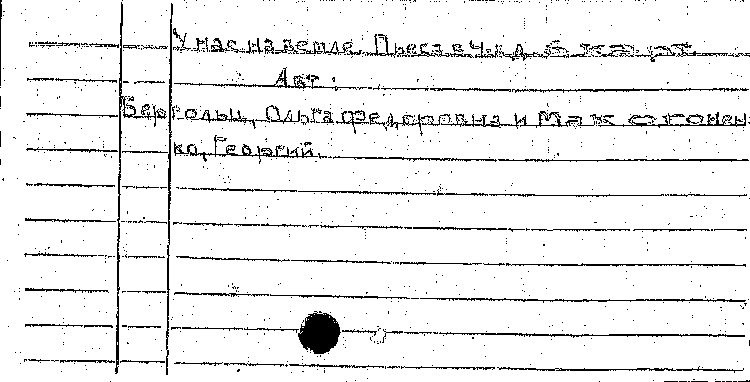 У нас на земле. Пьеса в 4-х д. 6 карт.
Авт:
Берггольц, Ольга Федоровна и Макогонен-
ко, Георгий.